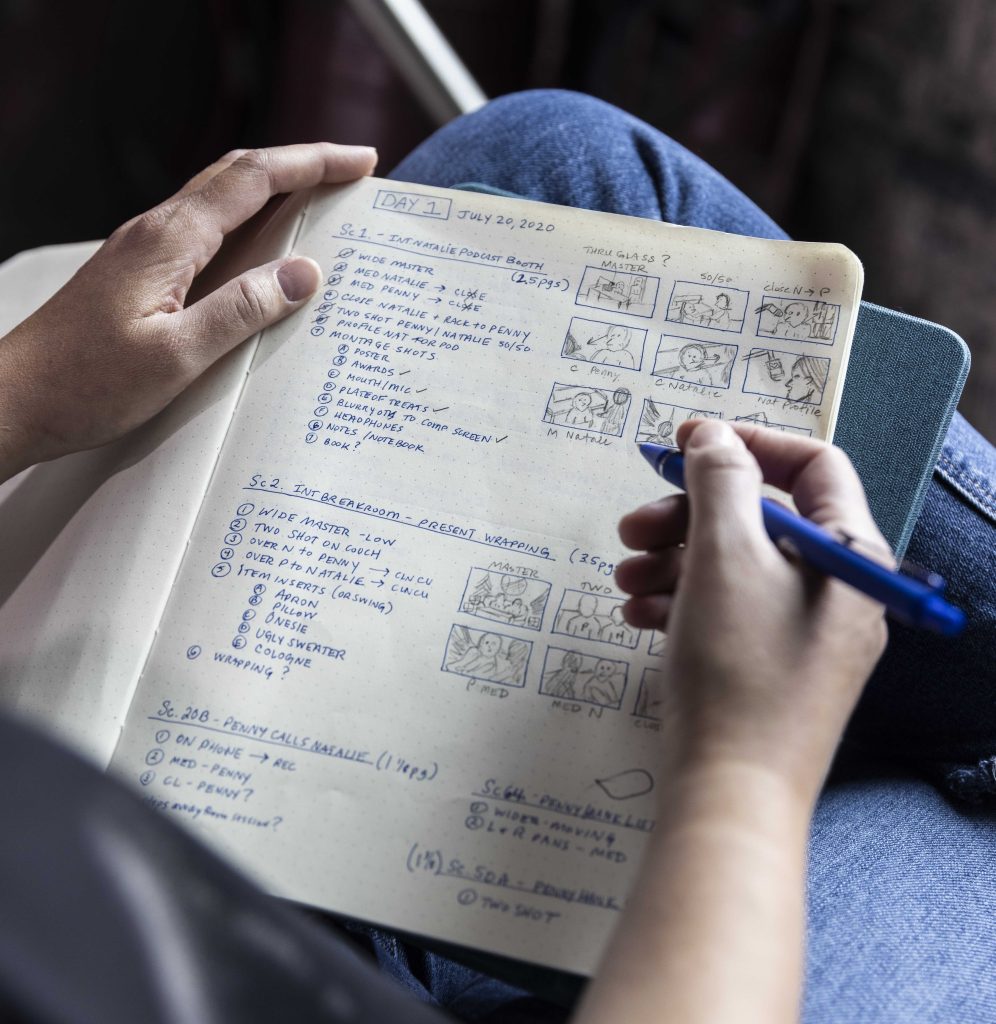 DAY 1 JULY 20, 2020
Sc 1. - INT NATALIE PODCAST BOOTH (2.5 pgs)
WIDE MASTER
MED NATALIE → CLOSE
MED PENNY → CLOSE
④ CLOSE NATALIE + RACK TO PENNY
TWO SHOT PENNY / NATALIE 50/50.
PROFILE NAT FOR POD
⑦ MONTAGE SHOTS
Ⓐ POSTER
Ⓑ AWARDS ✓
Ⓒ MOUTH/MIC ✓
Ⓓ PLATE OF TREATS ✓
Ⓔ BLURRY TO COMP SCREEN ✓
Ⓕ HEADPHONES
NOTES /NOTEBOOK
BOOK?
THRU GLASS?
MASTER
50/50
close N → P
C Penny
C Natalie
Nat Profile
M Natalie
Sc 2. INT BREAKROOM - PRESENT WRAPPING (3.5 pgs
① WIDE MASTER - LOW
② TWO SHOT ON COUCH
③ OVER N TO PENNY → CLN CU
④ OVER P TO NATALIE → CLN CU
⑤ ITEM INSERTS (OR SWING)
Ⓐ APRON
Ⓑ PILLOW
Ⓒ ONESIE
Ⓓ UGLY SWEATER
Ⓔ COLOGNE
⑥ WRAPPING?
MASTER
TWO
P MED
MED N
CLOS
Sc. 20B - PENNY CALLS NATALIE (1 1/8 pg)
① ON PHONE → REC
② MED - PENNY
③ CL - PENNY?
away from
Sc 64 - PENNY HANK LIST
① WIDER - MOVING
② L + R PANS - MED
Sc. 50A - PENNY HANK
① TWO SHOT